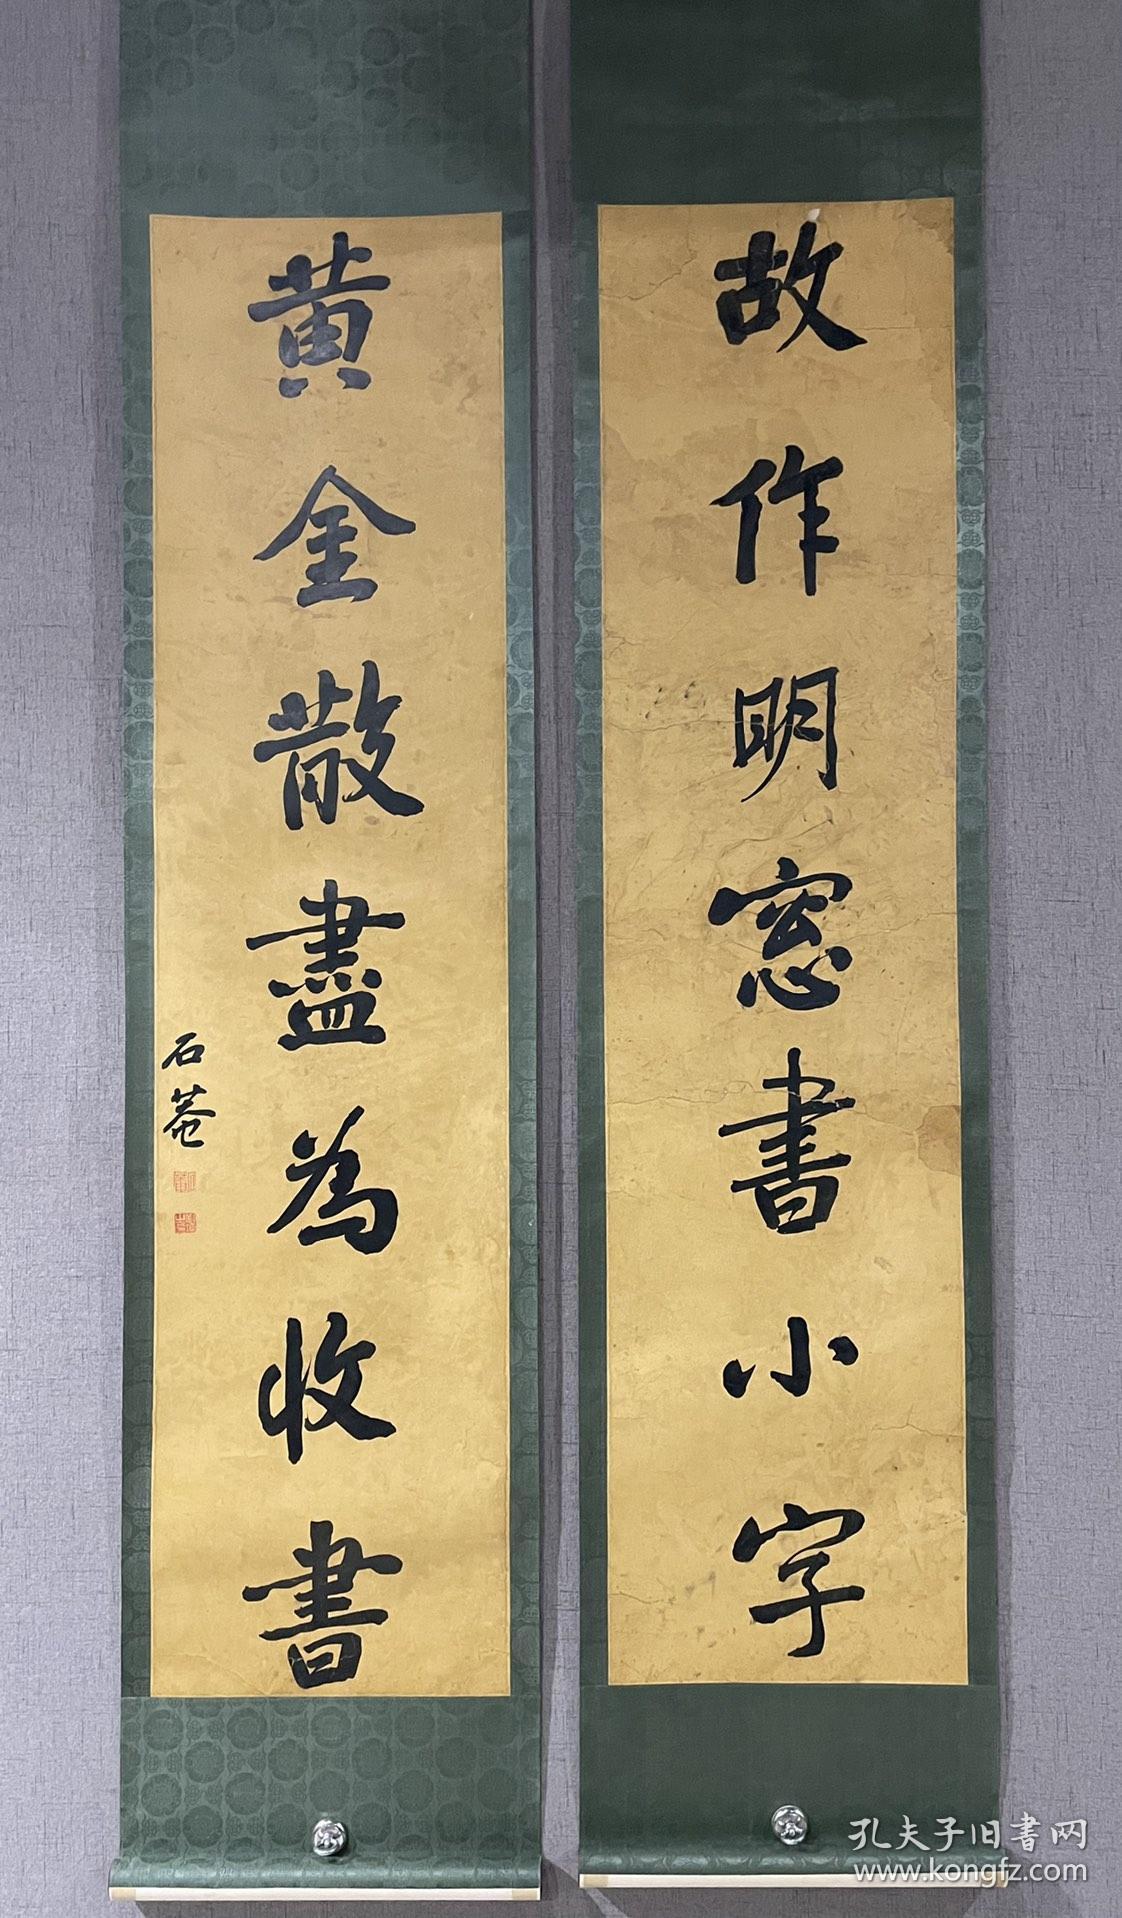 故作明窓書小字
黄金散盡為收書
石菴
孔夫子旧書网
www.kongfz.com